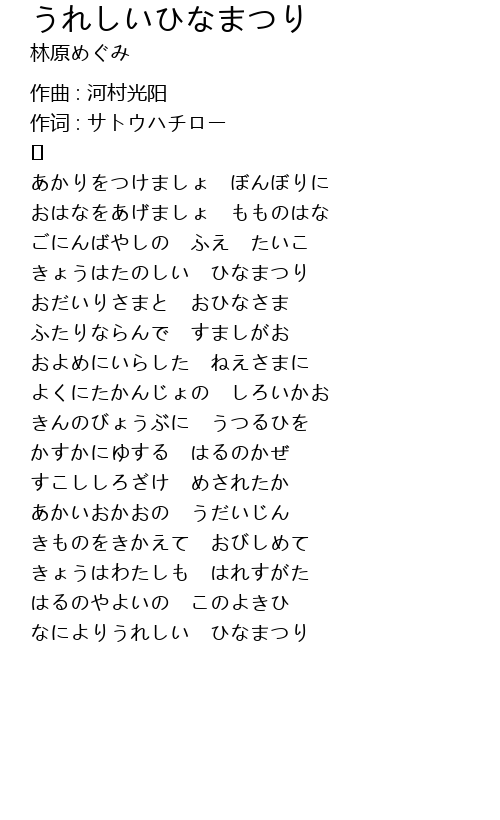 うれしいひなまつり
林原めぐみ
作曲 : 河村光阳
作词 : サトウハチロー
[]
あかりをつけましょ　ぼんぼりに
おはなをあげましょ　もものはな
ごにんばやしの　ふえ　たいこ
きょうはたのしい　ひなまつり
おだいりさまと　おひなさま
ふたりならんで　すましがお
およめにいらした　ねえさまに
よくにたかんじょの　しろいかお
きんのびょうぶに　うつるひを
かすかにゆする　はるのかぜ
すこししろざけ　めされたか
あかいおかおの　うだいじん
きものをきかえて　おびしめて
きょうはわたしも　はれすがた
はるのやよいの　このよきひ
なによりうれしい　ひなまつり